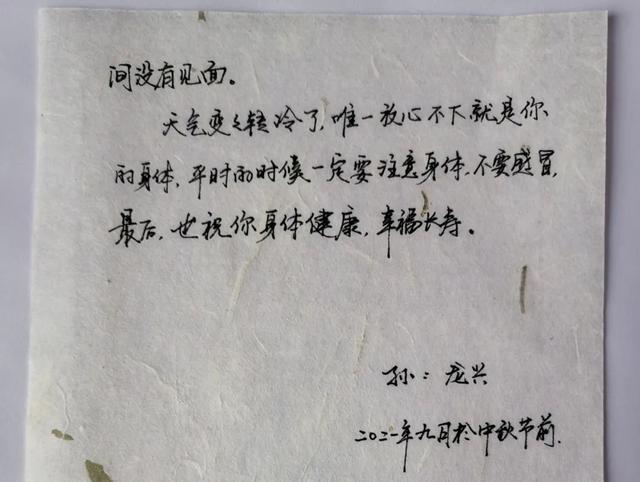 间没有见面。
天气变之转冷了,唯一放心不下就是你
的身体,平时的时候一定要注意身体,不要感冒,
最后,也祝你身体健康,幸福长寿。
孙:龙兴
二〇二一年九月於中秋节前.